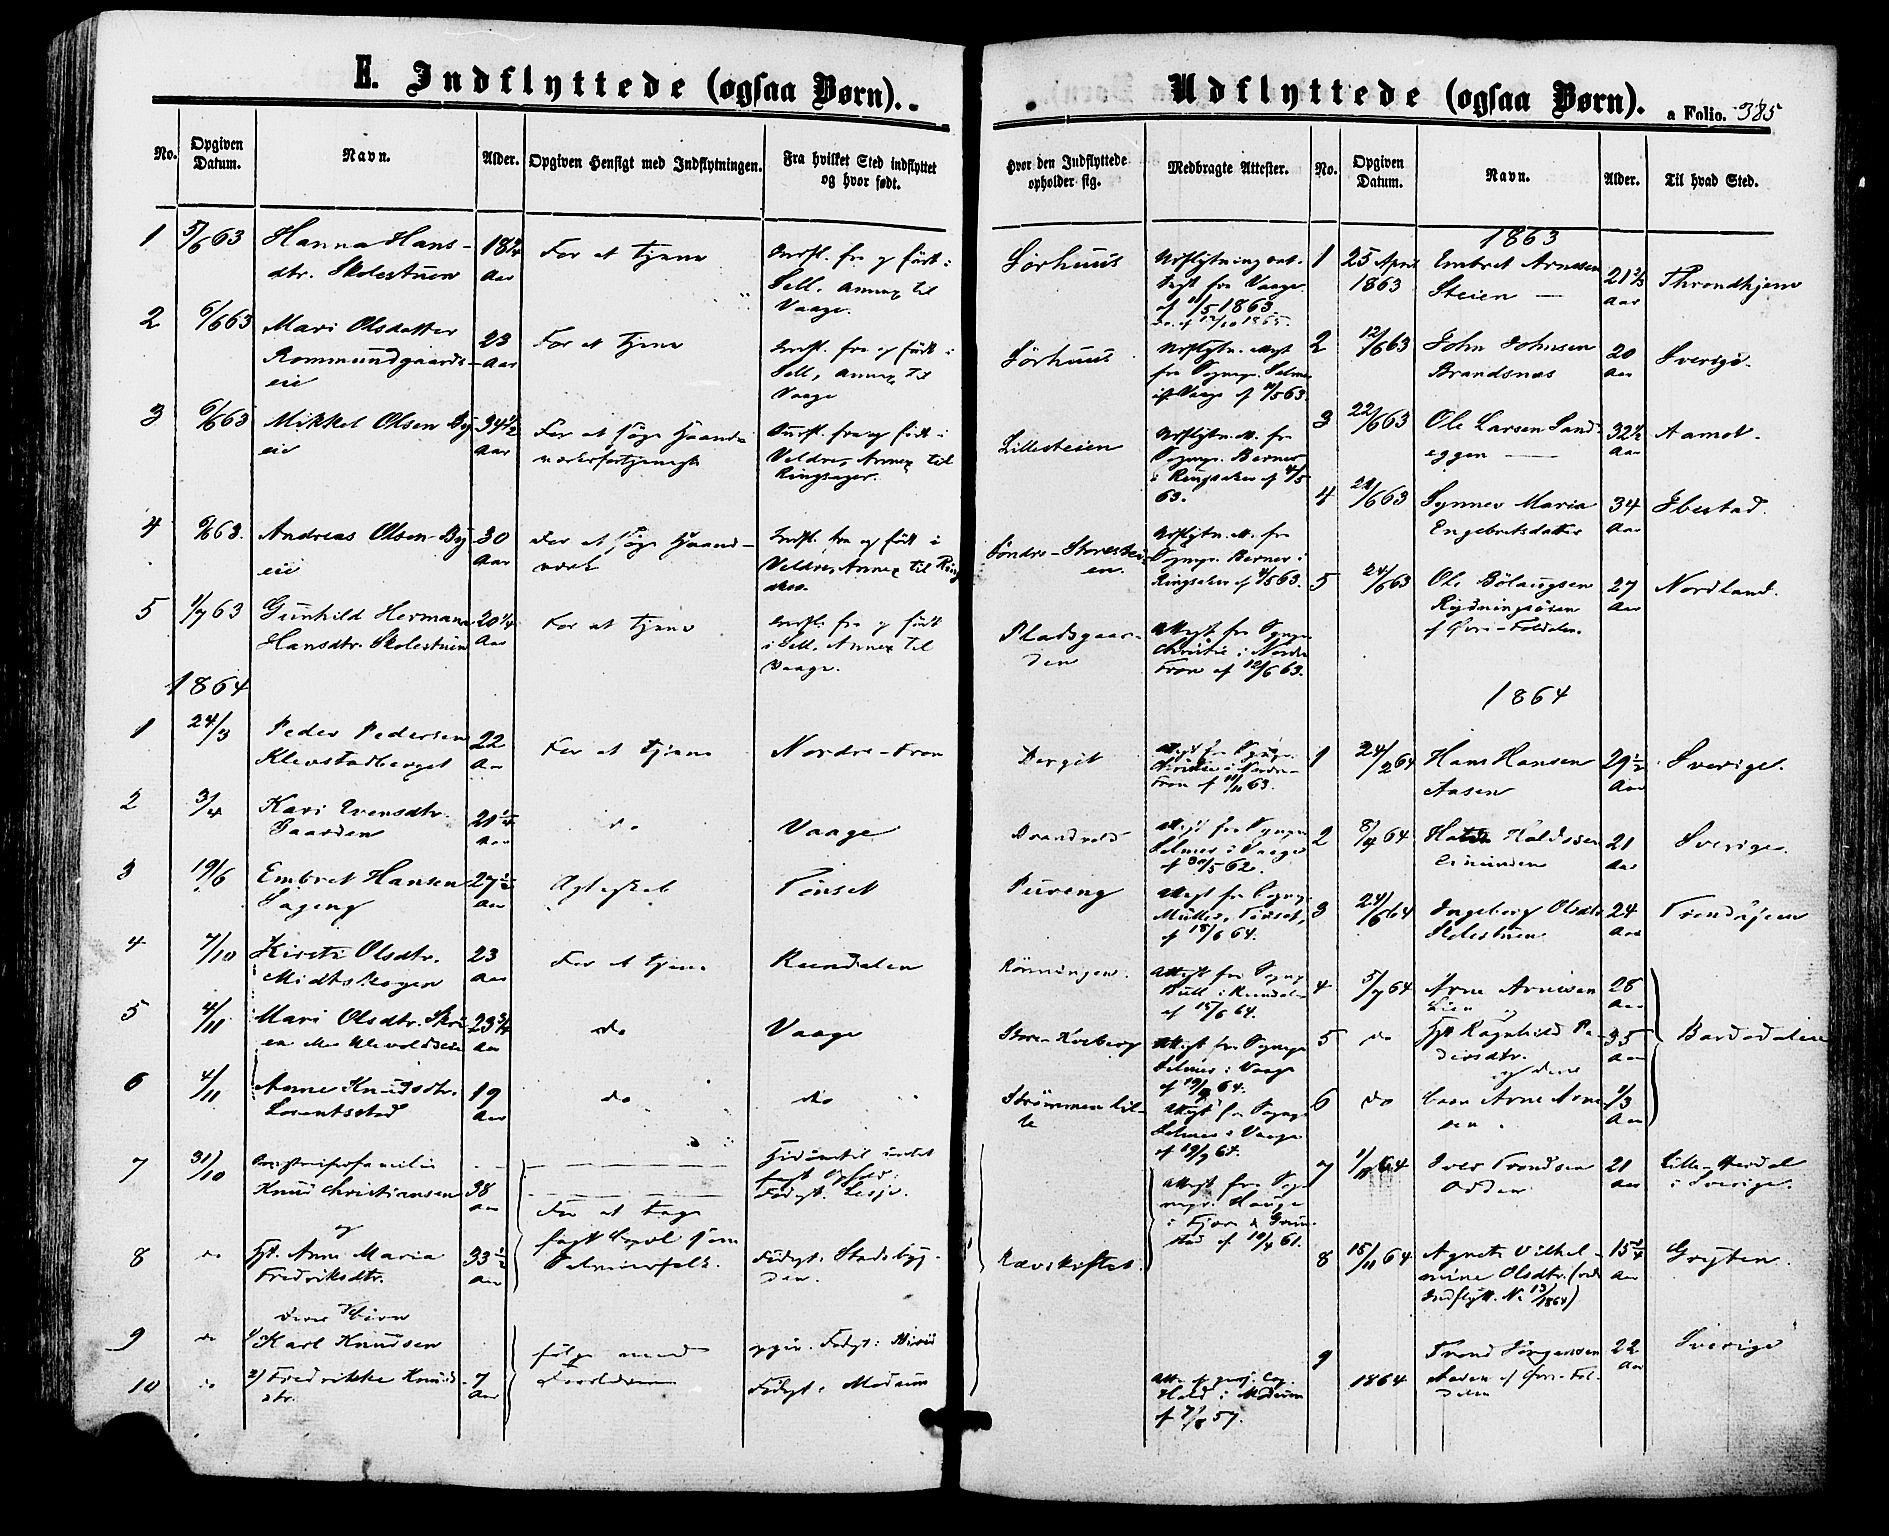 E. Indflyttede (ogsaa Børn).
No.
Opgiven Datum.
Navn.
Alder.
Opgiven Hensigt med Indflytningen.
Fra hvilket Sted indflyttet og hvor født.
1 5/6 63 Hanna Hans-
dtr. Skolestuen Aar
For at tjene
Indfl. fra og født i
Sell, Annex til
Vaage.
2 6/6 63 Mari Olsdatter 23
Rommundgaards- Aar
eie
For at tjene
Indfl. fra og født i
Sell, Annex til
Vaage
3 6/6 63 Mikkel Olsen By 34 1/2
eie Aar
For at søge Haand-
værksfortjeneste
Indfl. fra og født i
Veldre, Annex til
Ringsager.
4 6/6 63. Andreas Olsen By 30
eie Aar
For at søge Haand-
værk
Indfl. fra og født i
Veldre, Annex til Ring
5 1/7 63 Gunhild Hermana 20 1/4
Hansdtr. Skolestuen Aar
For at tjene
Indfl. fra og født
i Sell, Annex til
Vaage.
1864
1 24/3 Peder Pedersen 22
Klevstadberget Aar
For at tjene
Nordre-Fron
2 3/4 Kari Iversdtr. 21 1/4
Gaarden Aar
do
Vaage
3 19/6 Embret Hansen 27 1/2
Sageng Aar
Ægteskab
Tönset
4 7/10 Kirsti Olsdtr. 23
Midtskogen Aar
For at tjene
Rendalen
5 4/11 Mari Olsdtr. 23 3/4
Aar
do
Vaage
6 4/11 Anne Knudsdtr. 19
Lorentsstad Aar
do
do
7 31/10
Knud Christiansen 38
Aar
og
8 do Anne Maria 33 1/2
Fredriksdtr. Aar
For at tage
fast Bopæl som
Fødest. Lesje.
Fødest. Stadsbyg-
den.
deres Børn
9 do 1) Karl Knudsen
10 do 2) Fredrikke Knuds- 7
dtr. Aar
følge med
Forældrene
Fødest: Modum
Udflyttede (ogsaa Børn).
a Folio. 385
Hvor den Indflyttede opholder sig.
Medbragte Attester.
No.
Opgiven Datum.
Navn.
Alder.
Til hvad Sted.
Sørhuus
Udflytningsat-
test fra Vaage
af 11/5 1863.
Sørhuus
Udflytn. Attest
fra Sognepr. Selmer
i Vaage af 11/5 63.
Lillesteien
Udflytn. A. fra
Sognepr. Berner
i Ringsaker af 4/5
63.
Søndre-Storestei-
en.
Udflytn. A. fra
Sognepr. Berner i
Ringsaker af 4/5 63.
Pladsgaar-
den
Attest fra Sognepr.
Christie i Nordre
Fron af 12/6 63.
Bergit
Attest fra Sognepr.
Christie i Nordre-
Fron af 11/11 63.
Brandvold
Attest fra Sognepr.
Selmer i Vaage
af 30/5 62.
Pureng
Attest fra Sognepr.
Müller, Tönset,
af 18/6 64.
Rönningen.
Attest fra Sognepr.
Bull i Rendalen
af 15/6 64.
Store-Koeberg
Attest fra Sognepr.
Selmer i Vaage
af 19/9 64.
Strömmen lil-
le
Attest fra Sognepr.
Selmer i Vaage
af 19/9 64.
Attest fra Sog-
nepr. Hauge
af 19/4 61.
Hold i Modum
af 7/8 57.
1863
1 25 April Embret Arnesen 21 2/3 Throndhjem
1863 Steien — Aar
2 12/6 63 John Johnsen 20 Sverige.
Brandsnæs Aar
3 22/6 63 Ole Larsen Sand- 32 1/2 Aamot.
eggen — Aar
4 22/6 63 Synnev Maria 34 Ibestad.
Engebretsdatter Aar
5 24/6 63 Ole 27 Nordland.
Rydningsøsen Aar
af Øvre-Foldalen.
1864
1 24/2 64 Hans Hansen 29 1/2 Sverige.
Aasen Aar
2 8/4 64 21 Sverige.
Aar
3 24/6 64 Ingeborg Olsdtr. 24 Trondhjem
Skolestuen Aar
4 5/7 64 Arne Arnesen 28
Lien og Aar
5 do Ragnhild Pe- 35
dersdtr. Aar
og deres
6 do Barn Arne Arne- 1/3
sen. Aar
Bardodalen
7 1/11 64 Iver Trondsen 21 Lille-Herdal
Odden Aar i Sverige.
8 15/11 64 Agnete Vilhel- 15 1/4 Gryten.
mine Olsdtr. (vide Aar
Indflytt. No 13/1864)
9 Trond Jørgensen 22 Sverige
1864 af Øvre-Fol- Aar
dalen